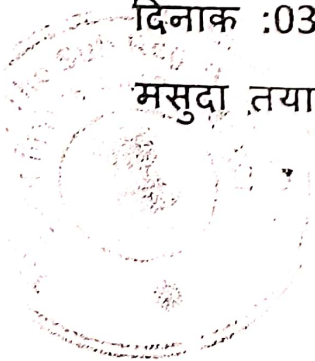 दिनाक :03
मसुदा तया